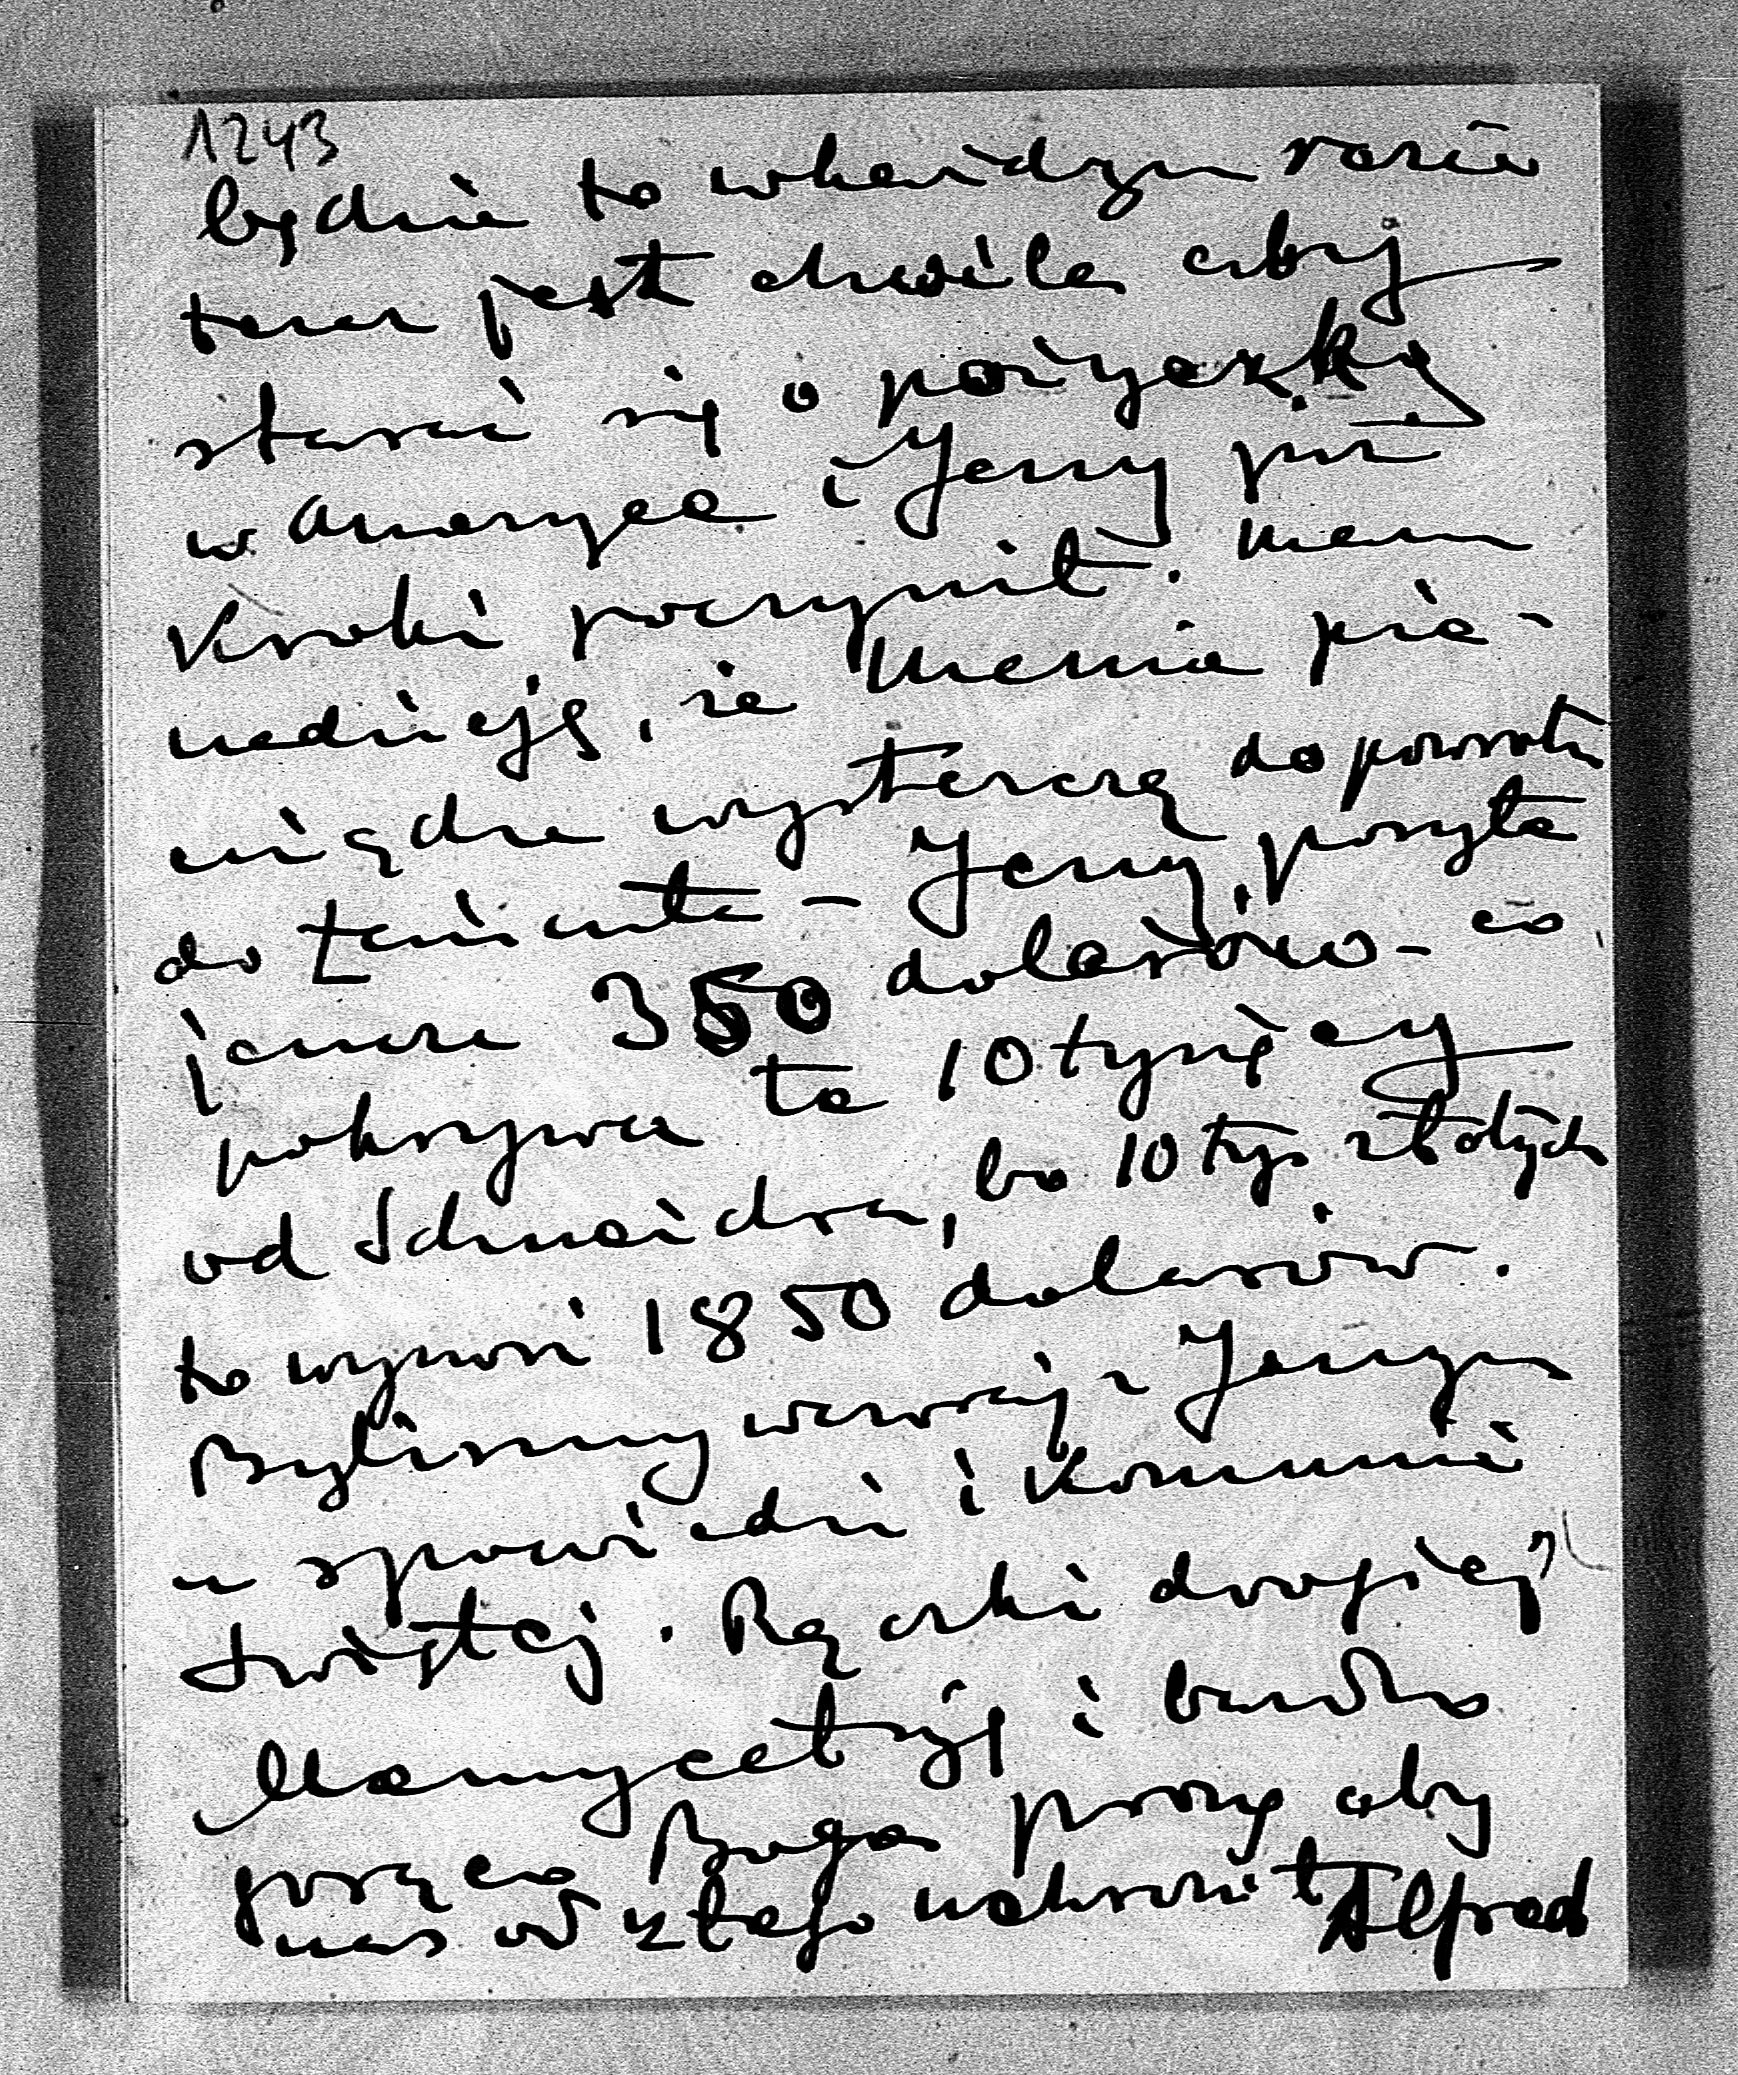 1243
będzie to w każdym razie
teraz jest chwila aby
starać się o pożyczkę
w Ameryce i Jerzy już
kroki poczynił. Mam
nadzieję, że Mamie pie-
niądze wystarczą do powrotu
do Łańcuta – Jerzy posyła
jeszcze 350 dolarów – co
pokrywa te 10 tysięcy
od Schneidra, bo 10 tys. złotych
to wynosi 1850 dolarów.
Byliśmy wczoraj z Jerzym
u spowiedzi i Komunii
świętej. Rączki drogiej
Mamy całuję i bardzo
gorąco Boga proszę aby
nas od złego uchronił Alfred